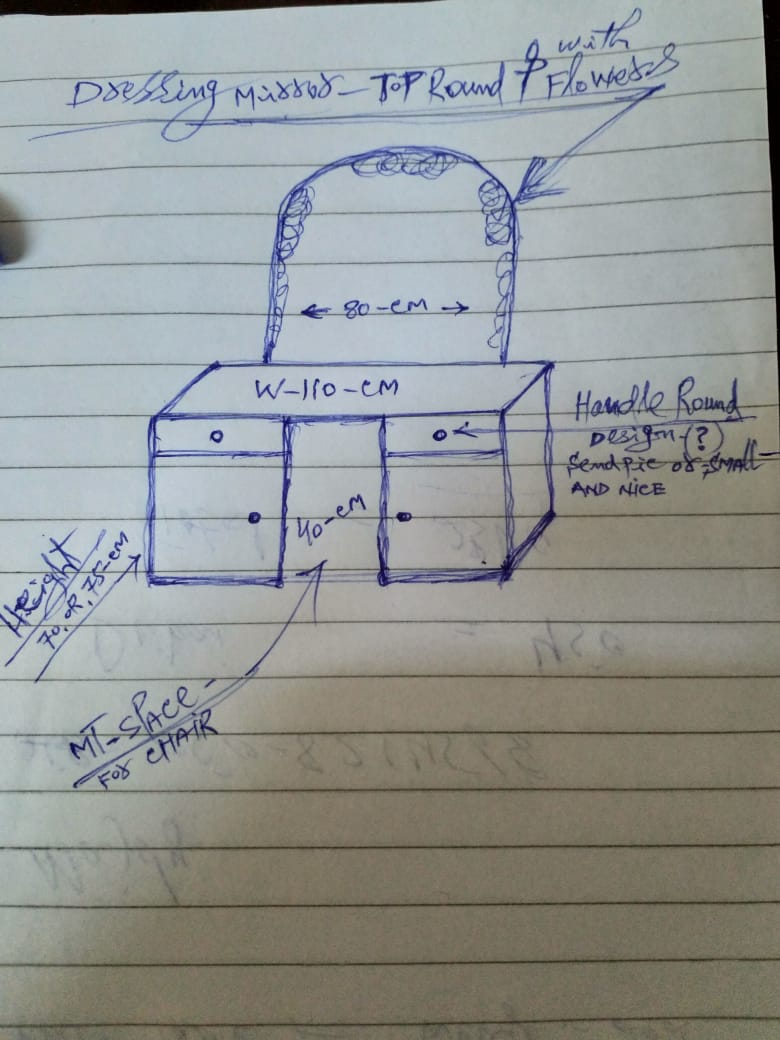 with
Dressing Mirror - TOP Round & Flowers
← 80-CM →
W-110-CM
Handle Round
Design-(?)
Send pic or SMALL
AND NICE
40-CM
Height
70, OR, 75-CM
MT-SPACE-
FOR CHAIR